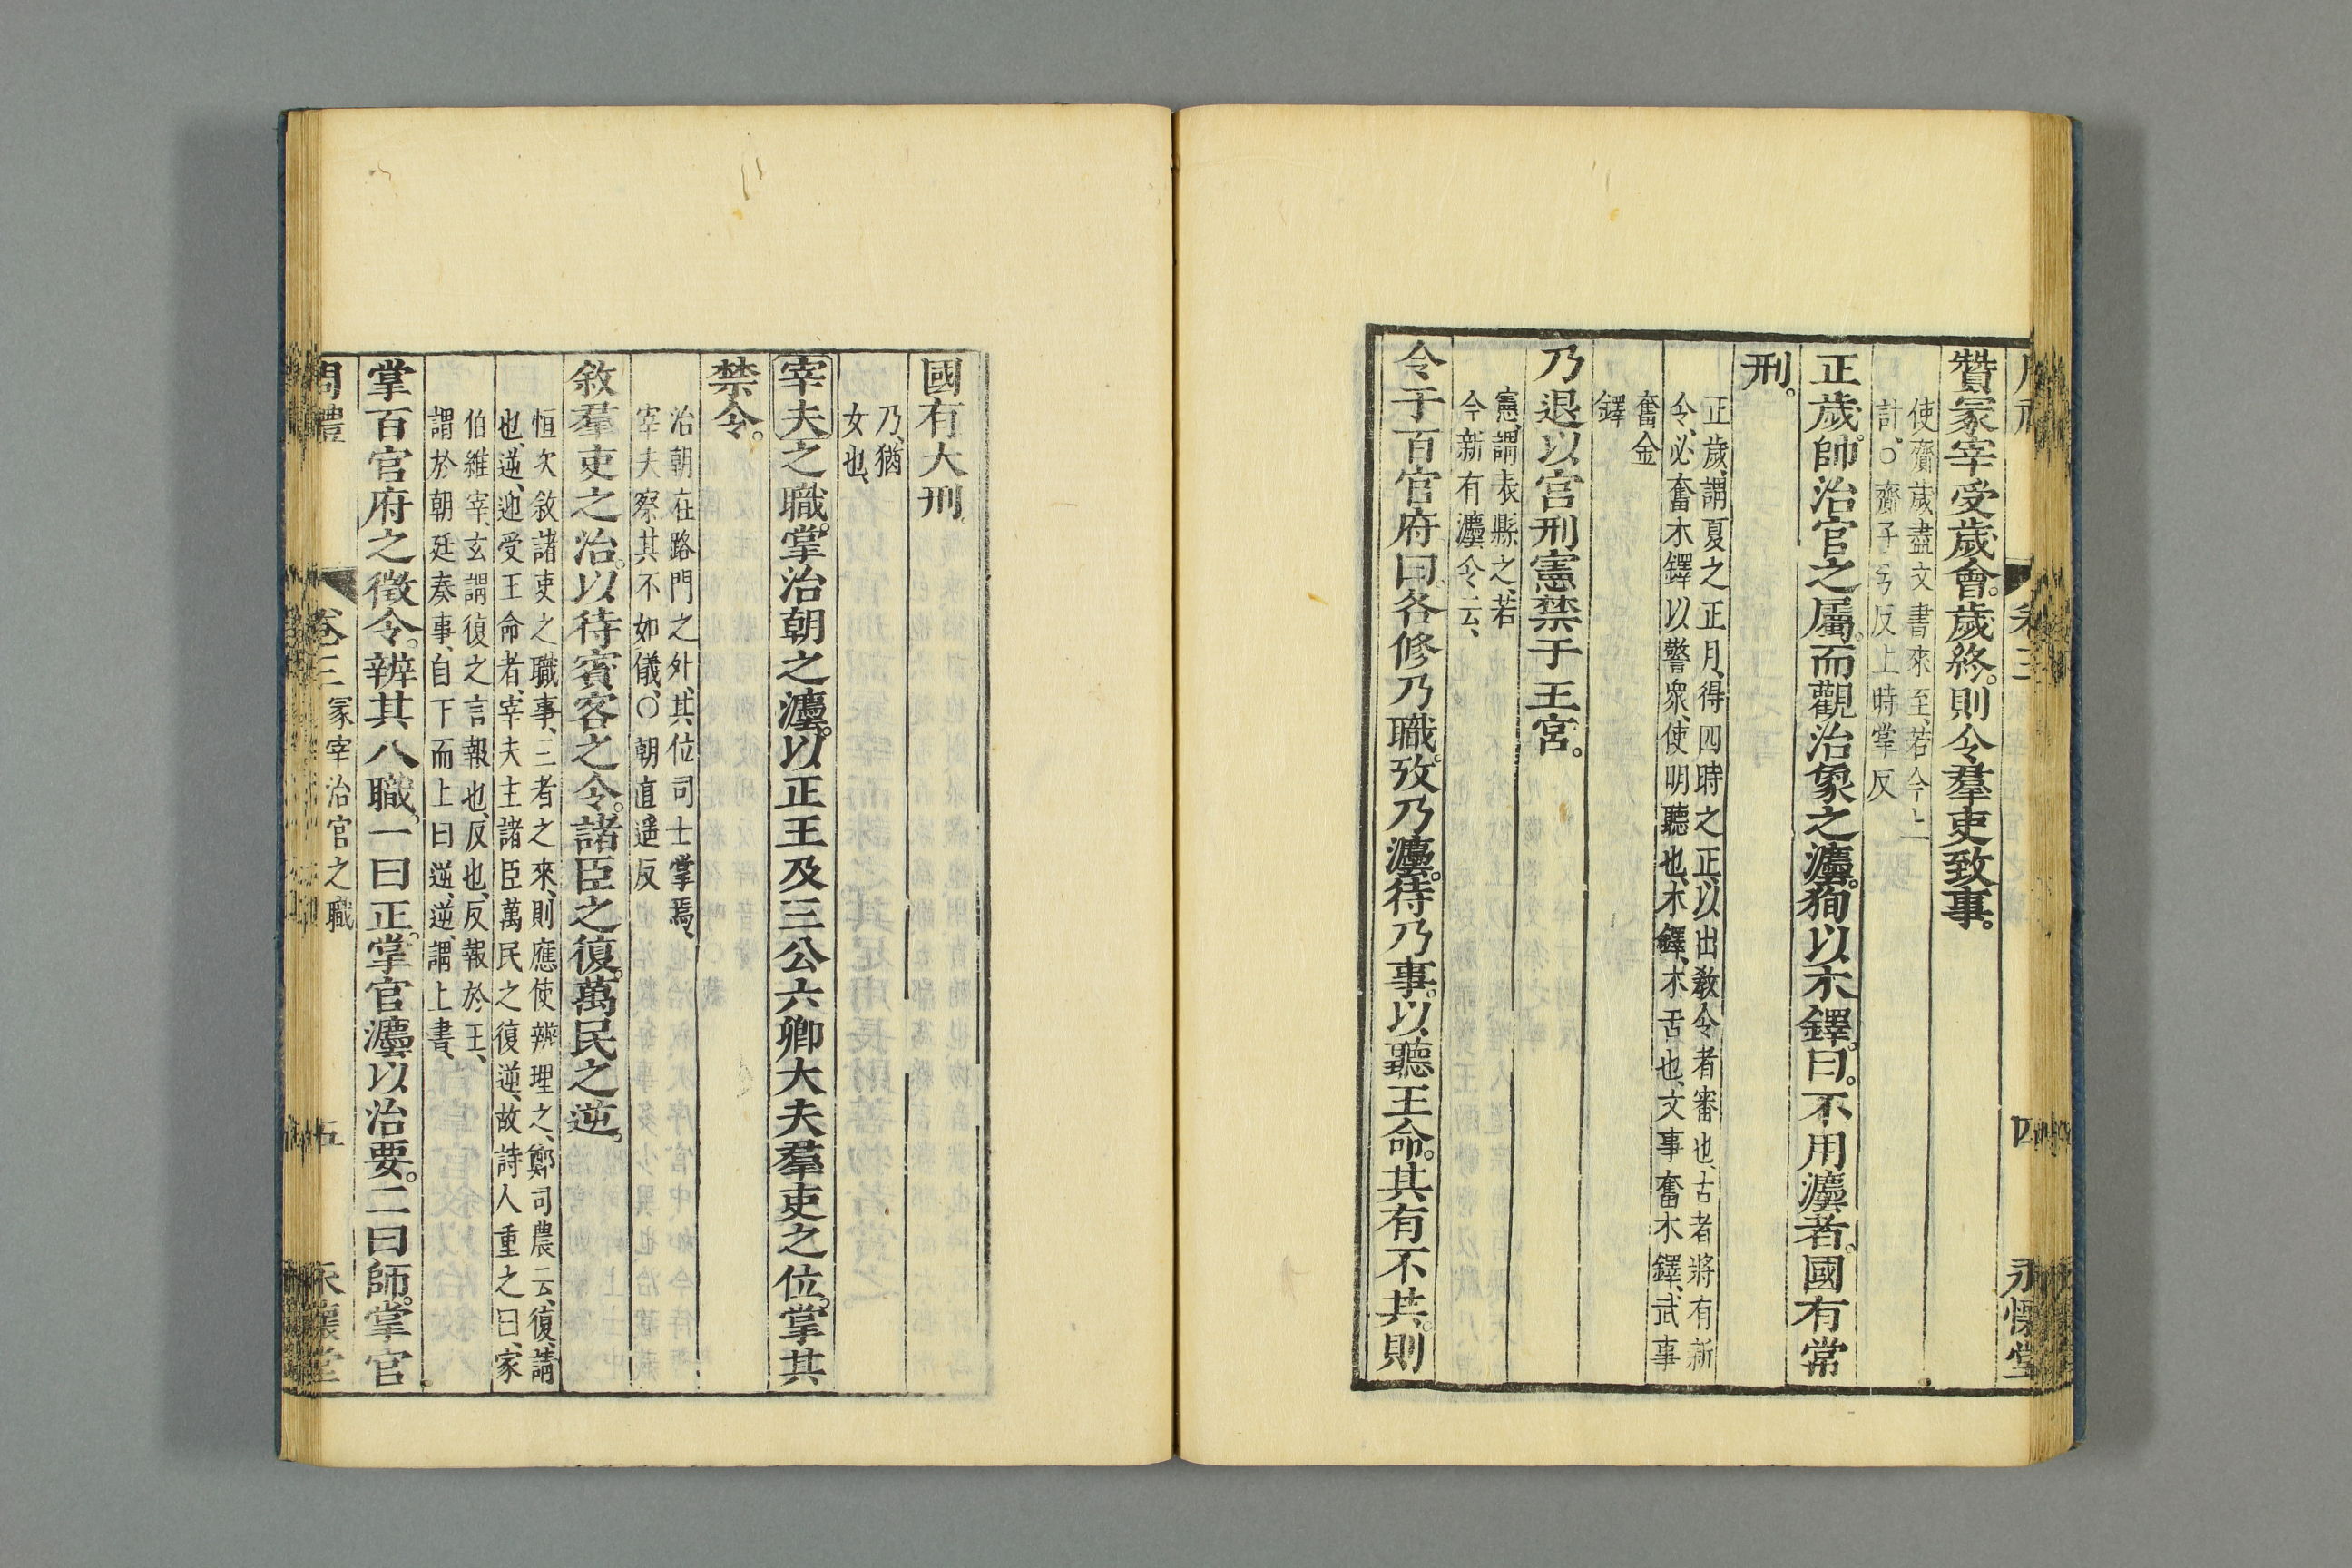 贊冢宰受歲會。歲終。則令羣吏致事。
使齎歲盡文書來至、若今上
計、○齎子兮反上時掌反
正歲。帥治官之屬。而觀治象之灋。狥以木鐸。曰。不用灋者。國有常
刑。
正歲、謂夏之正月、得四時之正、以出教令者審也、古者將有新
令、必奮木鐸以警衆、使明聽也、木鐸、木舌也、文事奮木鐸、武事
奮金
鐸
乃退以宮刑憲禁于王宮。
憲、謂表縣之、若
今新有灋令云、
令于百官府曰。各修乃職。攷乃灋。待乃事。以聽王命。其有不共。則
永懷堂
四
國有大刑。
乃、猶
女也、
宰夫之職。掌治朝之灋。以正王及三公六卿大夫羣吏之位。掌其
禁令。
治朝在路門之外、其位司士掌焉、
宰夫察其不如儀、○朝直遥反
敘羣吏之治。以待賓客之令。諸臣之復。萬民之逆。
恒次敘諸吏之職事、三者之來、則應使辨理之、鄭司農云、復、請
也、逆、迎受王命者、宰夫主諸臣萬民之復逆、故詩人重之曰、家
伯維宰、玄謂復之言報也、反也、反報於王、
謂於朝廷奏事、自下而上曰逆、逆、謂上書、
掌百官府之徵令。辨其八職。一曰正。掌官灋以治要。二曰師。掌官
周禮 卷三 冢宰治官之職 五 永懷堂